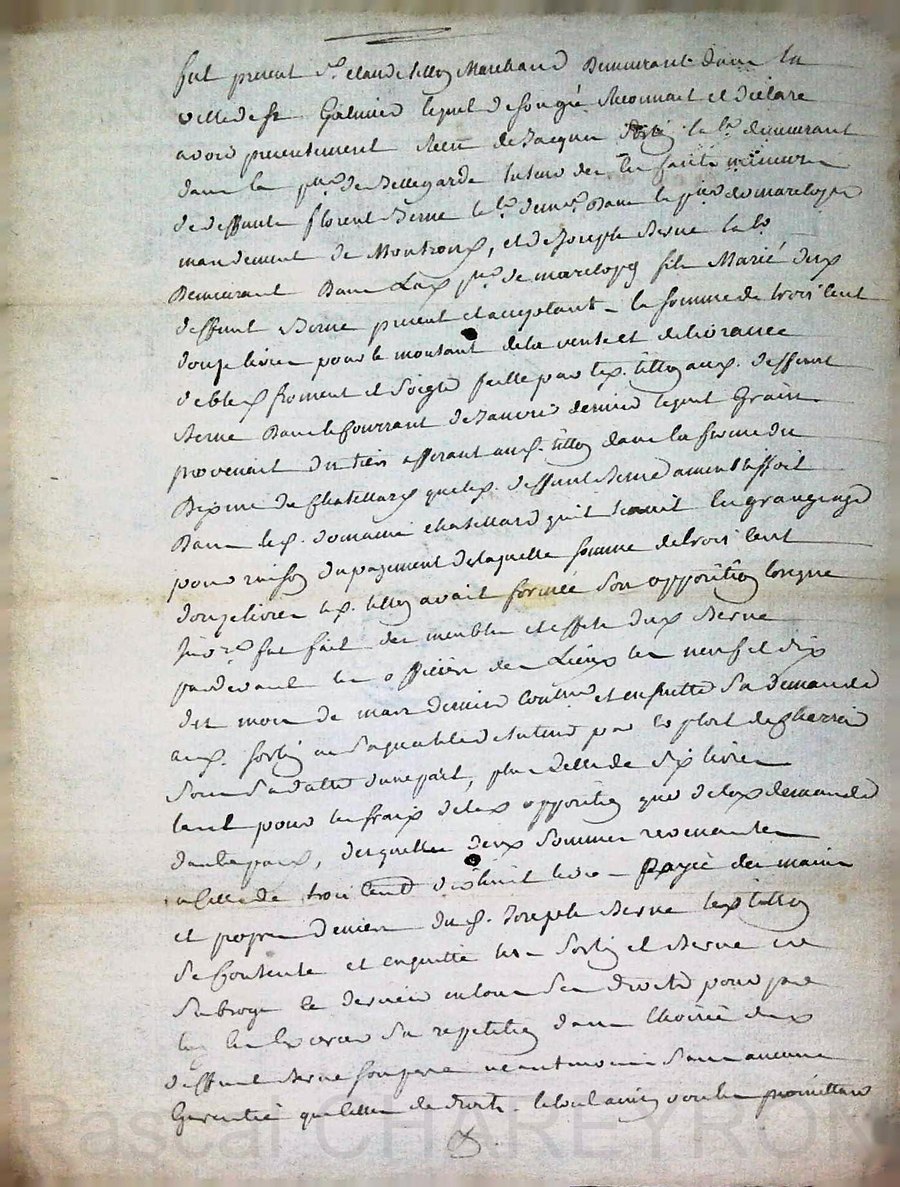 fut present Sr. claude tillon Marchand Demeurant dans la
ville de st Galmier lequel de son gré Reconnait et declare
avoir presentement Receu de Jacques Sorti lab.r demeurant
dans la p.sse de Bellegarde tuteur des Enfants mineurs
de deffunte florent Berne lab.r dem.t Dans la p.sse de mareloppe
mandement de Montrond, et de Joseph Berne lab.r
Demeurant Dans La d. p.sse de mareloppe fils Marié dud.
deffunt Berne present et acceptant - la somme de trois Cent
douze livres pour le montant de la vente et delivrance
de bled froment et Seigle faitte par led. tillon aud. deffunt
Berne Dans le Courrant de Janvier dernier lequel Grain
provenait du tiers afferant aud. tillon dans la ferme du
Dixme de Chatillard que led. deffunt Berne
Dans led. domaine chatillard qu'il tenait En grangeage
pour raison du payement de laquelle somme de trois Cent
douze livres led. tillon avait formée Son opposition lorsque
fut fait des meubles et effets dud. Berne
pardevant les officiers des Lieux les neuf et dix
du mois de mars dernier et en suitte Sa Demande
aud. Sorti en Saqualité de tuteur par Exploit de
Sous Sa datte d'une part, plus Celle de Six livres
tant pour les fraix de lad. opposition que de lad. demande
d'autre part, desquelles deux Sommes revenantes
a Celle de trois Cent dixhuit livres - payée des mains
et propres Deniers du d. Joseph Berne led. tillon
Se Contente et en quitte les Sorti et Berne
Subroge le dernier en tous Ses droits pour par
luy En Exercer Sa repetition dans L'hoirie dud.
deffunt Berne Son pere neantmoins Sans aucune
Garentie que Celle de droit. le tout ainsy voulu promettant
Pascal CHAREYRON